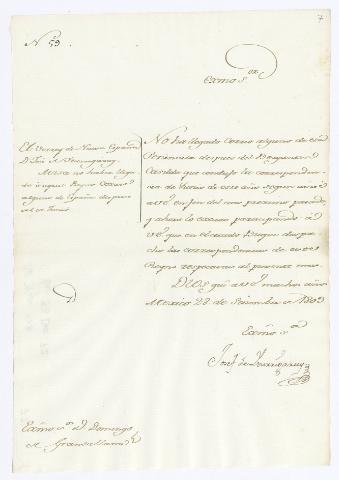 7
Nº 59
Exmo Sor
El Virrey de Nueva España
D. José de Yturrigaray
Avisa no haber llega-
do à aquel Reyno Correo
alguno de España despues
del de Junio
No ha llegado Correo alguno de esa
Peninsula despues del Bergantin
Cantabro que conduxo la correspondencia
de Junio de este año segun avisé
à V.E. en fin del mes proximo pasado,
y ahora lo executo participando à
V.E. que en el citado Buque despa-
cho las correspondencias de este
Reyno respectivas al presente mes.
Dios gue à V.E. muchos años
Mexico 28 de 1803
Exmo Sor
Josef de Yturrigaray
Exmo Sor Dn Domingo
de Grandallana